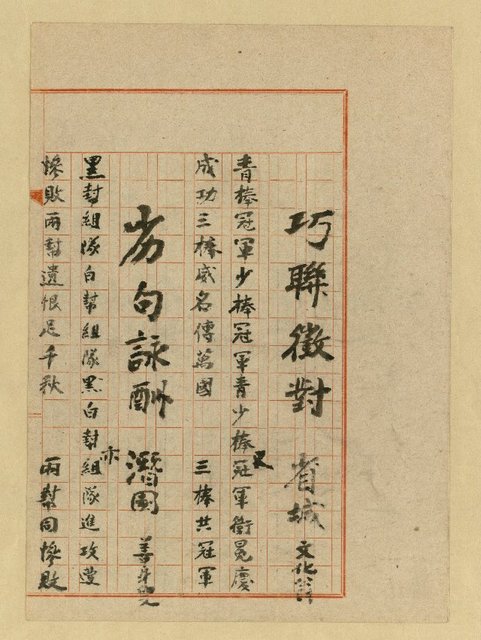 巧聯徵對 省城 文化
青棒冠軍少棒冠軍青少棒又冠軍衛冕慶
成功三棒威名傳萬國 三棒共冠軍
劣句詠酬 潛園 善身叟
黑封組隊白幫組隊黑白封亦組隊進攻雙
慘敗兩幫遺恨足千秋 兩幫同慘敗